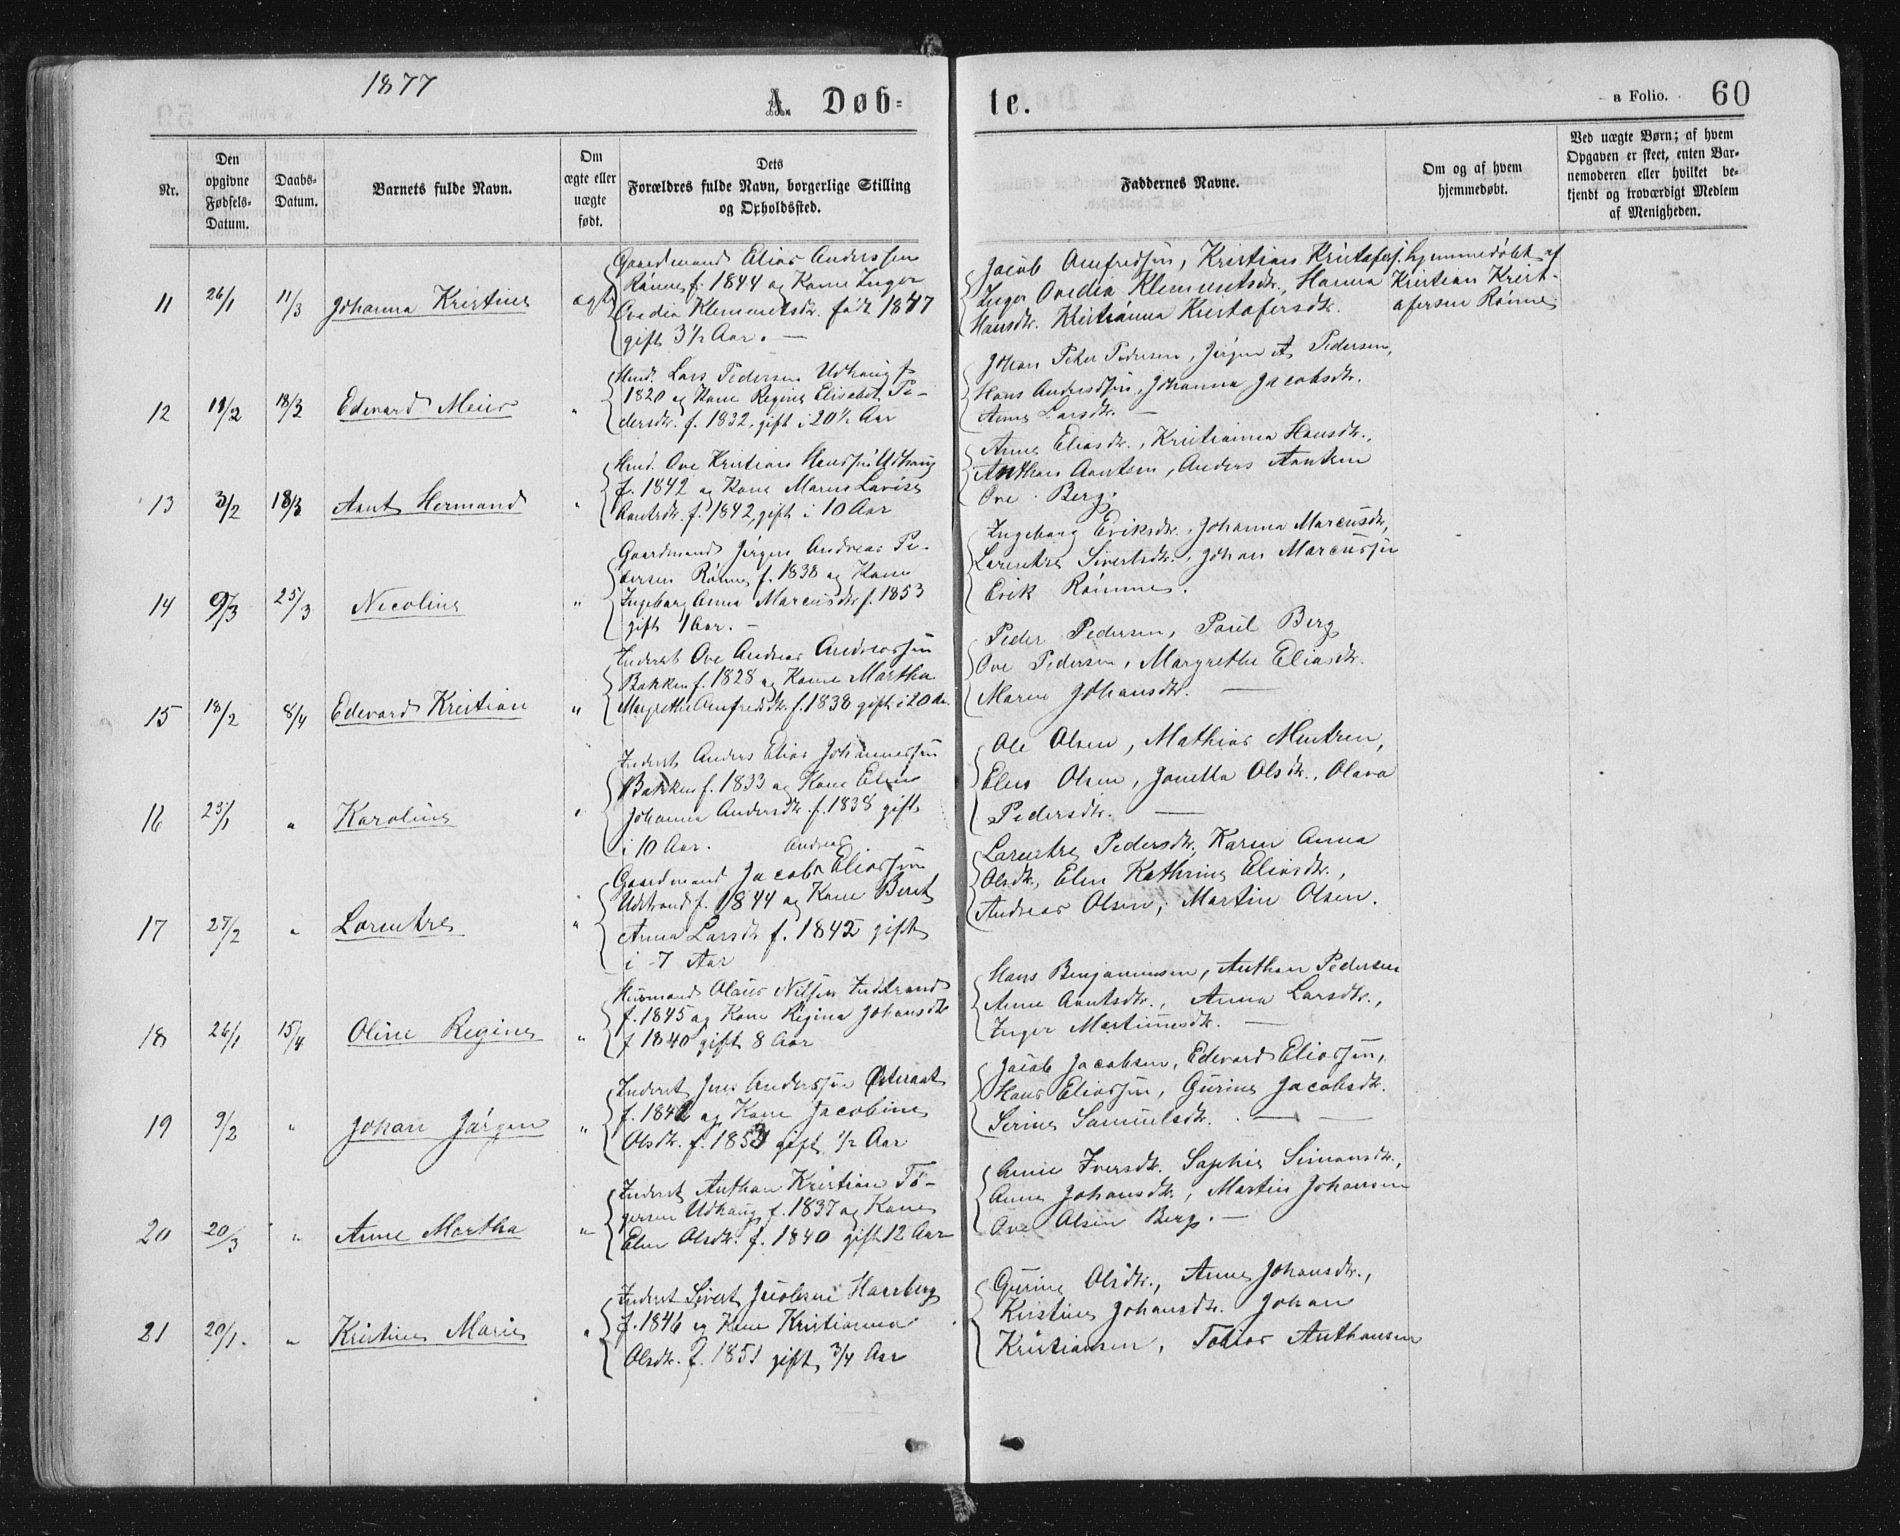 1877
A. Døb-
te.
a Folio. 60
Nr.
Den opgivne Fødsels-Datum.
Daabs-Datum.
Barnets fulde Navn.
Om ægte eller uægte født.
Dets
Forældres fulde Navn, borgerlige Stilling
og Opholdssted.
Faddernes Navne.
Om og af hvem
hjemmedøbt.
Ved uægte Børn; af hvem
Opgaven er skeet, enten Bar-
nemoderen eller hvilket be-
kjendt og troværdigt Medlem
af Menigheden.
11 26/1 11/3 Johanna Kristine ægte
Gaardmand Elias Anderssen
Rønne f. 1844 og Kone Inger
Ovedia Klemmetsdtr. født 1847
gift 3 1/2 Aar. —
Jacob Amfredsen, Kristian Kristofersen
Inger Ovedia Klemmetsdtr., Hanna
Hansdtr. Kristianna Kristofersdtr.
hjemmedøbt af
Kristian Krist-
ofersen Rønne
12 11/2 18/3 Edevard Meier "
Husmd. Lars Pedersen Udhaug f.
1820 og Kone Regine Elisabet Pe-
dersdtr. f. 1832, gift i 20 1/2 Aar
Johan Peter Pedersen, Jørgen A Pedersen,
Hans Anderssen, Johanna Jacobsdtr.
Anne Larsdtr. —
13 3/2 18/3 Arnt Hermand "
Husmd. Ove Kristian Hanssen Udhaug
f. 1842 og Kone Maren Lovise
Arntsdtr. f. 1842, gift i 10 Aar
Anne Eliasdtr., Kristianna Hansdtr.,
Anthon Arntsen, Anders Arntsen
Ove Berg.
14 9/3 25/3 Nicoline "
Gaardmand Jørgen Andreas Pe-
dersen Rønne f. 1838 og Kone
Ingeborg Anna Marcusdtr f. 1853
gift 1 Aar. —
Ingeborg Eriksdtr., Johanna Marcusdtr,
Lorentze Sivertsdtr. Johan Marcussen
Erik Rømme.
15 18/2 8/4 Edevard Kristian "
Inderst Ove Andreas Andreassen
Bakken f. 1828 og Kone Martha
Margrethe Amfredsdtr. f. 1838 gift i 20 Aar.
Peder Pedersen, Paul Berg
Ove Pedersen, Margrethe Eliasdtr.
Maren Johansdtr. —
16 23/1 " Karoline "
Inderst Anders Elias Johannessen
Bakken f. 1833 og Kone Elen
Johanna Andersdtr. f. 1838 gift
i 10 Aar.
Ole Olsen, Mathias Mentzen,
Elias Olsen, Jonetta Olsdtr., Olava
Pedersdtr. —
17 27/2 " Lorentze "
Andreas
Gaardmand Jacob Eliassen
Udstrand f. 1844 og Kone Beret
Anna Larsdtr f. 1842 gift
i 7 Aar
Lorentze Pedersdtr, Karen Anna
Olsdtr, Elen Kathrine Eliasdtr.,
Andreas Olsen, Martin Olsen.
18 26/1 15/4 Oline Regine "
Husmand Olaus Nilssen Indstrand
f. 1845 og Kone Regina Johansdtr
f 1840 gift 8 Aar
Hans Benjaminsen, Anthon Pedersen
Anne Arntsdtr., Anna Larsdtr.,
Inger Martinusdtr. —
19 9/2 " Johan Jørgen "
Inderst Jens Anderssen Østeraat
f. 1842 og Kone Jacobine
Olsdtr. f. 1853 gift 1/2 Aar
Jacob Jacobsen, Edevard Eliassen,
Hans Eliassen, Gurine Jacobsdtr.
Serine Samuelsdtr. —
20 20/3 " Anne Martha "
Inderst Anthon Kristian Tø-
gersen Udhaug f. 1837 og Kone
Elen Olsdtr. f. 1840 gift 12 Aar
Anne Iversdtr. Sophie Simonsdtr.,
Anne Johansdtr, Martin Johansen
Ove Olsen Berg. —
21 20/1. " Kristine Marie "
Inderst Sivert Jacobsen Harsberg
f. 1846 og Kone Kristianna
Olsdtr. f. 1851 gift 3/4 Aar
Gurine Olsdtr., Anne Johansdtr.,
Kristine Johansdtr. Johan
Kristiansen, Tobias Anthonsen